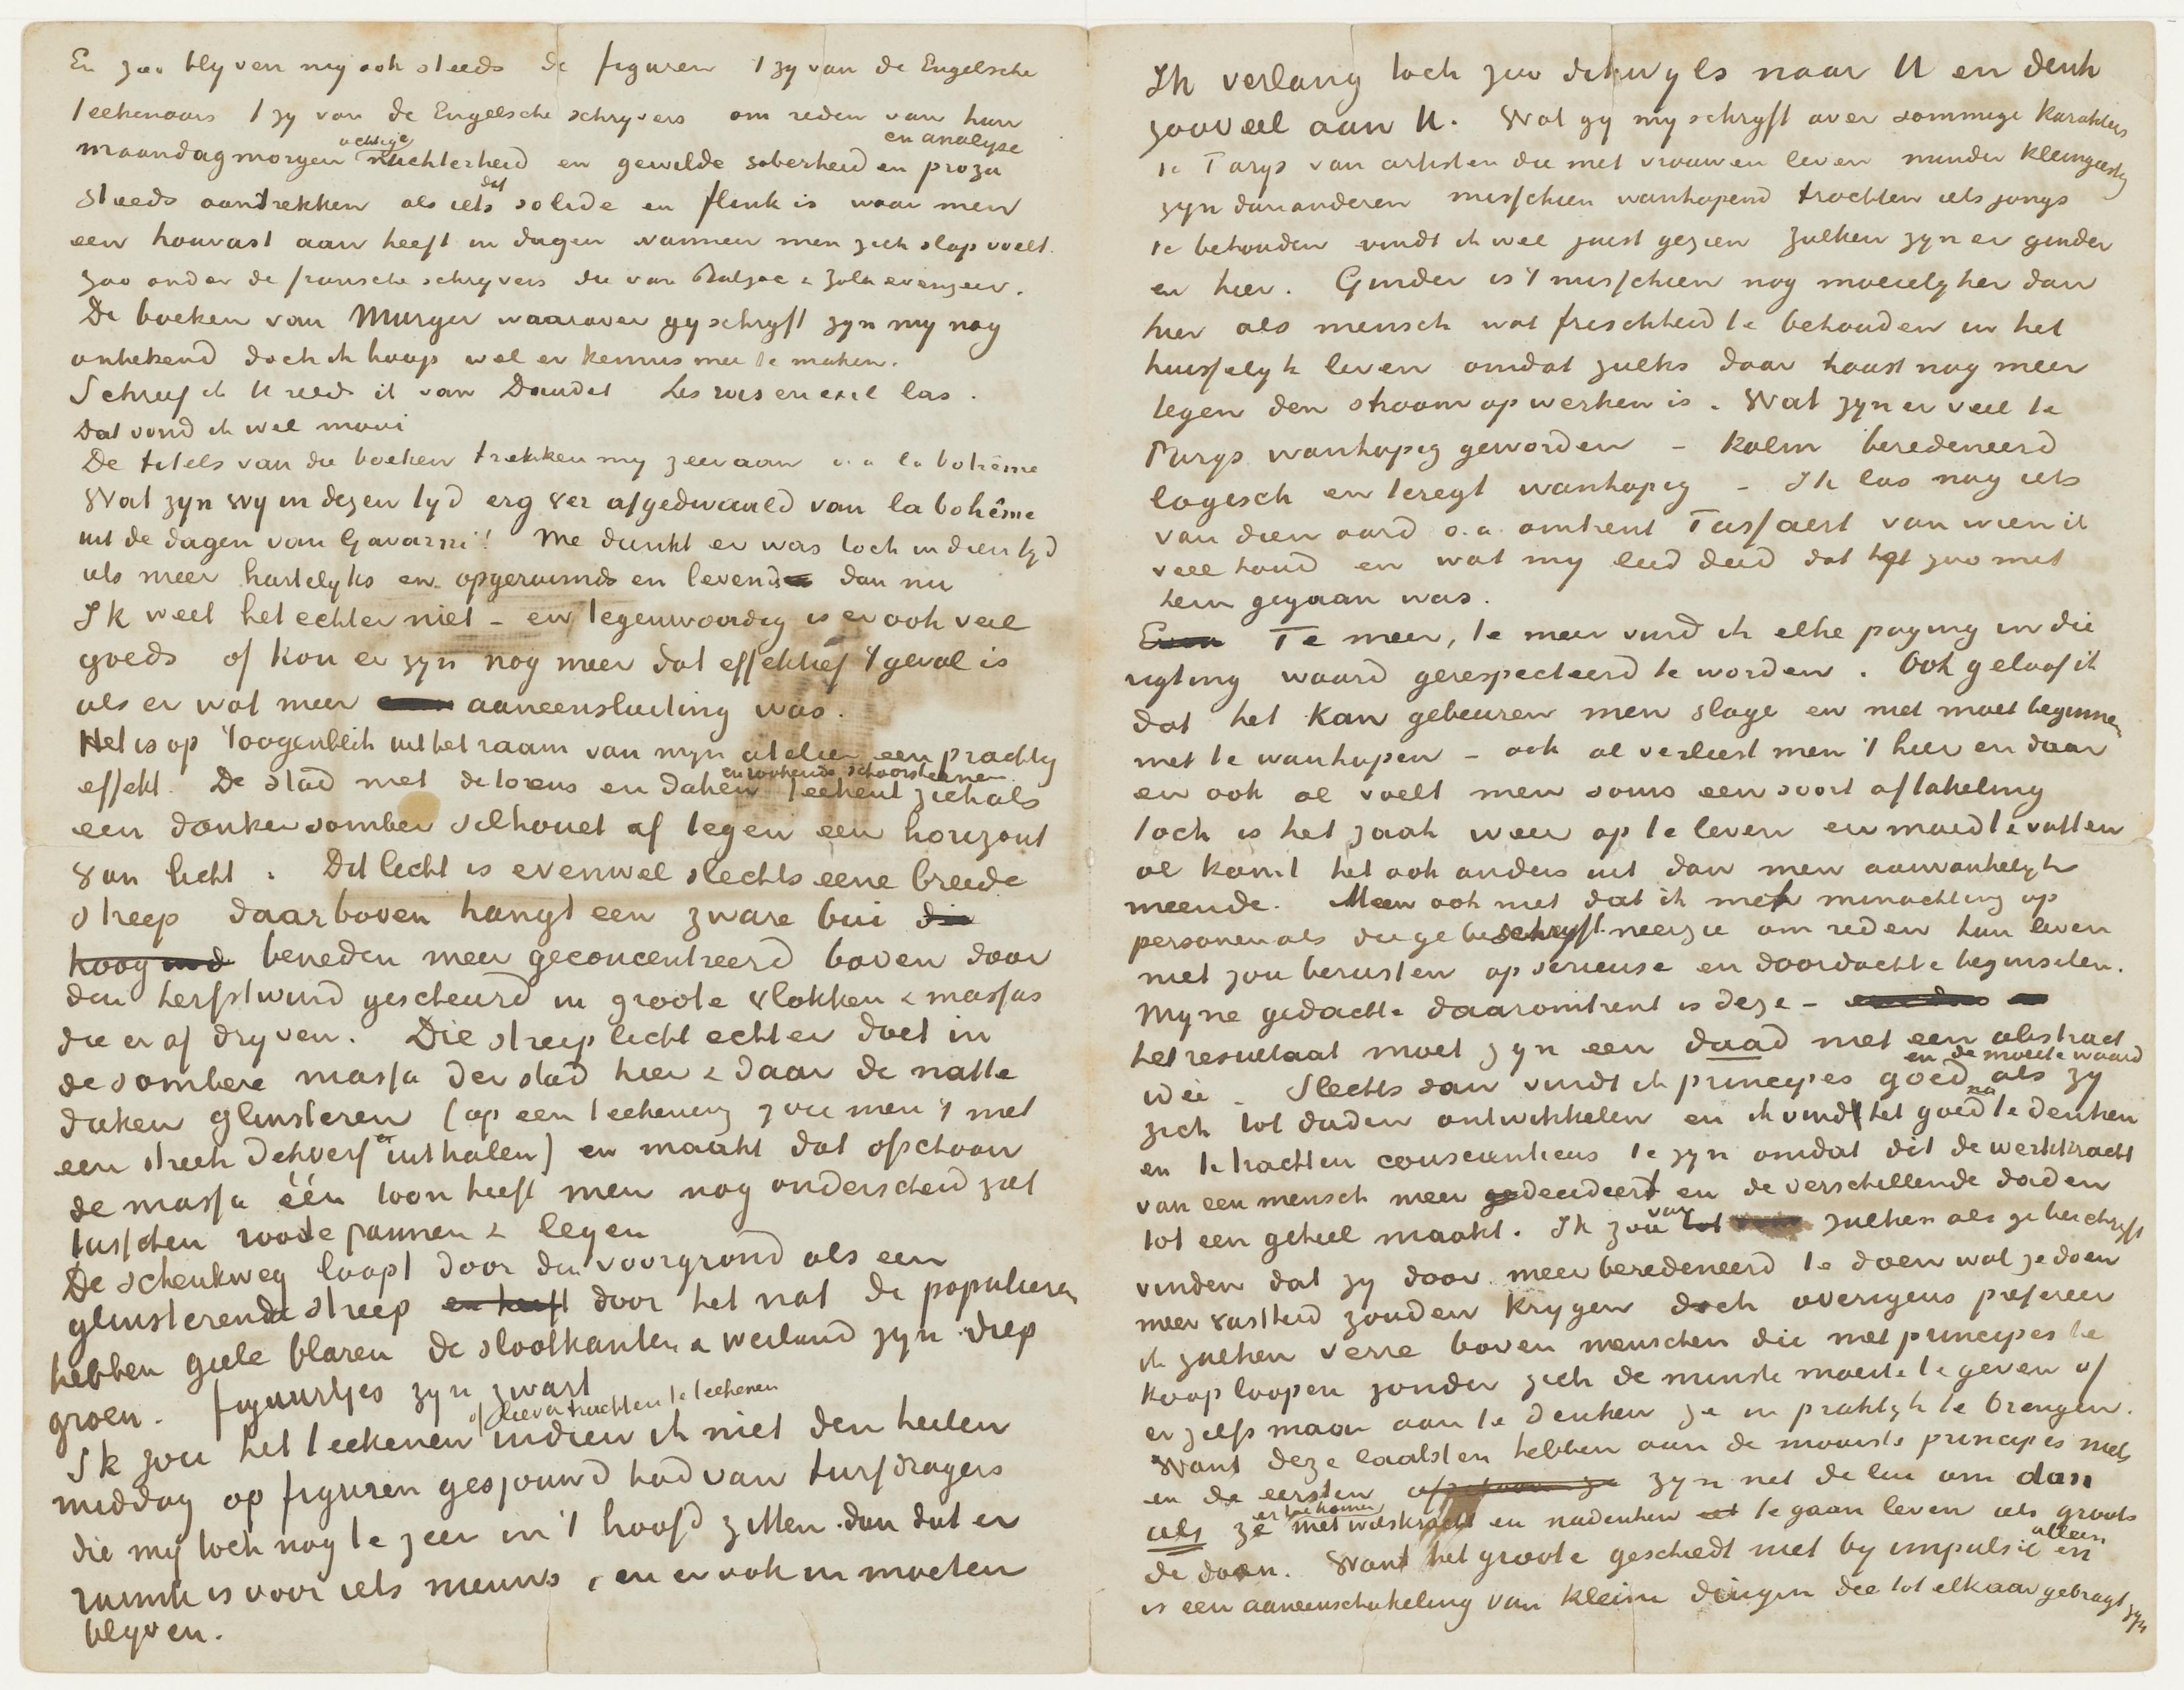 En zoo blyven my ook steeds de figuren 't zy van de Engelsche
teekenaars 't zy van de Engelsche schryvers om reden van hun
maandagmorgen achtige nuchterheid en gewilde soberheid en proza en analyse
steeds aantrekken als iets dat solide en flink is waar men
een houvast aan heeft in dagen wanneer men zich slap voelt.
zoo onder de fransche schryvers die van Balzac & Zola evenzeer.
De boeken van Murger waarover gy schryft zyn my nog
onbekend doch ik hoop wel er kennis mee te maken.
Schreef ik U reeds ik van Daudet Les rois en exil las.
Dat vond ik wel mooi
De titels van die boeken trekken my zeer aan o.a. la bohême
Wat zyn wy in dezen tyd erg ver afgedwaald van la bohême
uit de dagen van Gavarni! Me dunkt er was toch in dien tyd
iets meer hartelyks en opgeruimds en levends dan nu
Ik weet het echter niet – en tegenwoordig is er ook veel
goeds of kon er zyn nog meer dat effektief 't geval is
als er wat meer aaneensluiting was.
Het is op 't oogenblik uit het raam van myn atelier een prachtig
effekt. De stad met de torens en daken en rookende schoorsteenen teekent zich als
een donker somber silhouet af tegen een horizont
van licht. Dit licht is evenwel slechts eene breede
streep daarboven hangt een zware bui die
hoog en d beneden meer geconcentreerd boven door
den herfstwind gescheurd in groote vlokken & massas
die er af dryven. Die streep licht echter doet in
de sombere massa der stad hier & daar de natte
daken glinsteren (op een teekening zou men 't met
een streek dekverf er uithalen) en maakt dat ofschoon
de massa één toon heeft men nog onderscheid ziet
tusschen roode pannen & leyen
De schenkweg loopt door den voorgrond als een
glinsterende streep en heeft door het nat de populieren
hebben geele blaren de slootkanten & weiland zyn diep
groen. figuurtjes zyn zwart
Ik zou het teekenen of liever trachten te teekenen indien ik niet den heelen
middag op figuren gesjouwd had van turfdragers
die my toch nog te zeer in 't hoofd zitten dan dat er
ruimte is voor iets nieuws, en er ook in moeten
blyven.
Ik verlang toch zoo dikwyls naar U en denk
zooveel aan U. Wat gy my schryft over sommige karakters
te Parys van artisten die met vrouwen leven minder kleingeestig
zyn dan anderen misschien wanhopend trachten iets jongs
te behouden vindt ik wel juist gezien zulken zyn er ginder
en hier. Ginder is 't misschien nog moeielyker dan
hier als mensch wat frischheid te behouden in het
huisselyk leven omdat zulks daar haast nog meer
tegen den stroom op werken is. Wat zyn er veel te
Parys wanhopig geworden – kalm beredeneerd
logisch en teregt wanhopig – Ik las nog iets
van dien aard o.a. omtrent Tassaert van wien ik
veel houd en wat my leed deed dat het zoo met
hem gegaan was.
Even Te meer, te meer vind ik elke poging in die
rigting waard gerespecteerd te worden. Ook geloof ik
dat het kan gebeuren men slage en niet moet beginnen
met te wanhopen – ook al verliest men 't hier en daar
en ook al voelt men soms een soort aftakeling
toch is het zaak weer op te leven en moed te vatten
al komt het ook anders uit dan men aanvankelyk
meende. Meen ook niet dat ik met minachting op
personen als die ge beschryft neerzie om reden hun leven
niet zou berusten op serieuse en doordachte beginselen.
Myne gedachte daaromtrent is deze –
het resultaat moet zyn een daad niet een abstract
idée – Slechts dan vindt ik principes goed en de moeite waard als zy
zich tot daden ontwikkelen en ik vindt het goed na te denken
en te trachten consciencieus te zyn omdat dit de werkkracht
van een mensch meer gedecideerd en de verschillende daden
tot een geheel maakt. Ik zou van tot zulken als ge beschryft
vinden dat zy door meer beredeneerd te doen wat ze doen
meer vastheid zouden krygen doch overigens prefereer
ik zulken verre boven menschen die met principes te
koop loopen zonder zich de minste moeite te geven of
er zelfs maar aan te denken ze in praktyk te brengen.
Want deze laatsten hebben aan de mooiste principes niets
en de eersten ofschoon ze zyn net de lui om dan
als ze er toe komen met wilskracht en nadenken te gaan leven iets groots
de doen. Want het groote geschiedt niet by impulsie alleen en
is een aaneenschakeling van kleine dingen die tot elkaar gebragt zyn